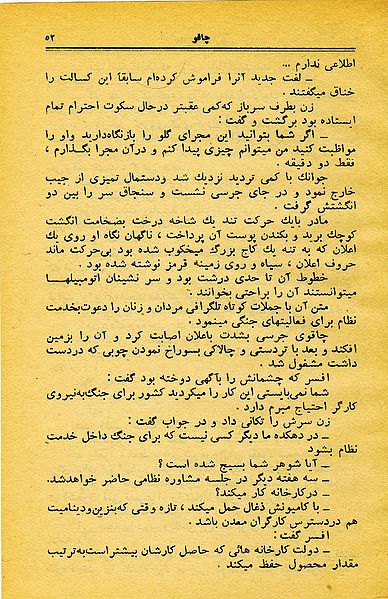 چاقو ۵۲
اطلاعی ندارم ...
ــ لغت جدید آنرا فراموش کرده‌ام سابقاً این کسالت را
خناق میگفتند .
زن بطرف سرباز که کمی عقبتر درحال سکوت احترام تمام
ایستاده بود برگشت و گفت :
ــ اگر شما بتوانید این مجرای گلو را بازنگاه‌دارید واو را
مواظبت کنید من میتوانم چیزی پیدا کنم و درآن مجرا بگذارم ،
فقط دو دقیقه .
جوانك با کمی تردید نزدیك شد ودستمال تمیزی از جیب
خارج نمود و در جای جرسی نشست و سنجاق سر را بین دو
انگشتش گرفت .
مادر بایك حرکت تند یك شاخه درخت بضخامت انگشت
کوچك برید و بکندن پوست آن پرداخت ، ناگهان نگاه او روی یك
اعلان که به تنه یك کاج بزرگ میخکوب شده بود بی‌حرکت ماند
حروف اعلان ، سیاه و روی زمینه قرمز نوشته شده بود .
خطوط آن تا حدی درشت بود و سر نشینان اتومبیلهــا
میتوانستند آن را براحتی بخوانند .
متن آن با جملات کوتاه تلگرافی مردان و زنان را دعوت‌بخدمت
نظام برای فعالیتهای جنگی مینمود .
چاقوی جرسی بشدت باعلان اصابت کرد و آن را بزمین
افکند و بعد با تردستی و چالاکی بسوراخ نمودن چوبی که دردست
داشت مشغول شد .
افسر که چشمانش را باگهی دوخته بود گفت :
شما نمی‌بایستی این کار را میکردید کشور برای جنگ‌به‌نیروی
کارگر احتیاج مبرم دارد .
زن سرش را تکانی داد و در جواب گفت :
ــ در دهکده ما دیگر کسی نیست که برای جنگ داخل خدمت
نظام بشود
ــ آیا شوهر شما بسیج شده است ؟
ــ سه هفته دیگر در جلسه مشاوره نظامی حاضر خواهدشد.
ــ درکارخانه کار میکند؟
ــ با کامیونش ذغال حمل میکند ، تازه وقتی که‌بنزین‌ودینامیت
هم دردسترس کارگران معدن باشد .
افسر گفت :
ــ دولت کارخانه هائی که حاصل کارشان بیشتر است‌به‌ترتیب
مقدار محصول حفظ میکند .